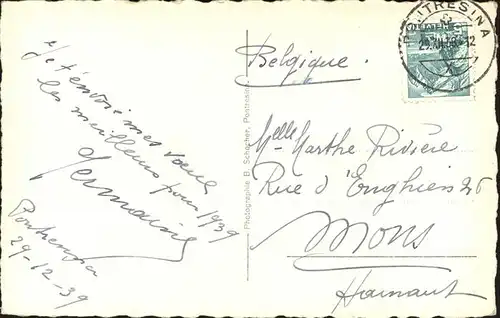 Je t'envoie mes vœux
les meilleurs pour 1939
Germaine
Pontresina
29-12-39
Photographie B. Schocher, Pontresina
PONTRESINA
Belgique.
Melle Marthe Rivière
Rue d'Enghien 26
Mons
Hainaut